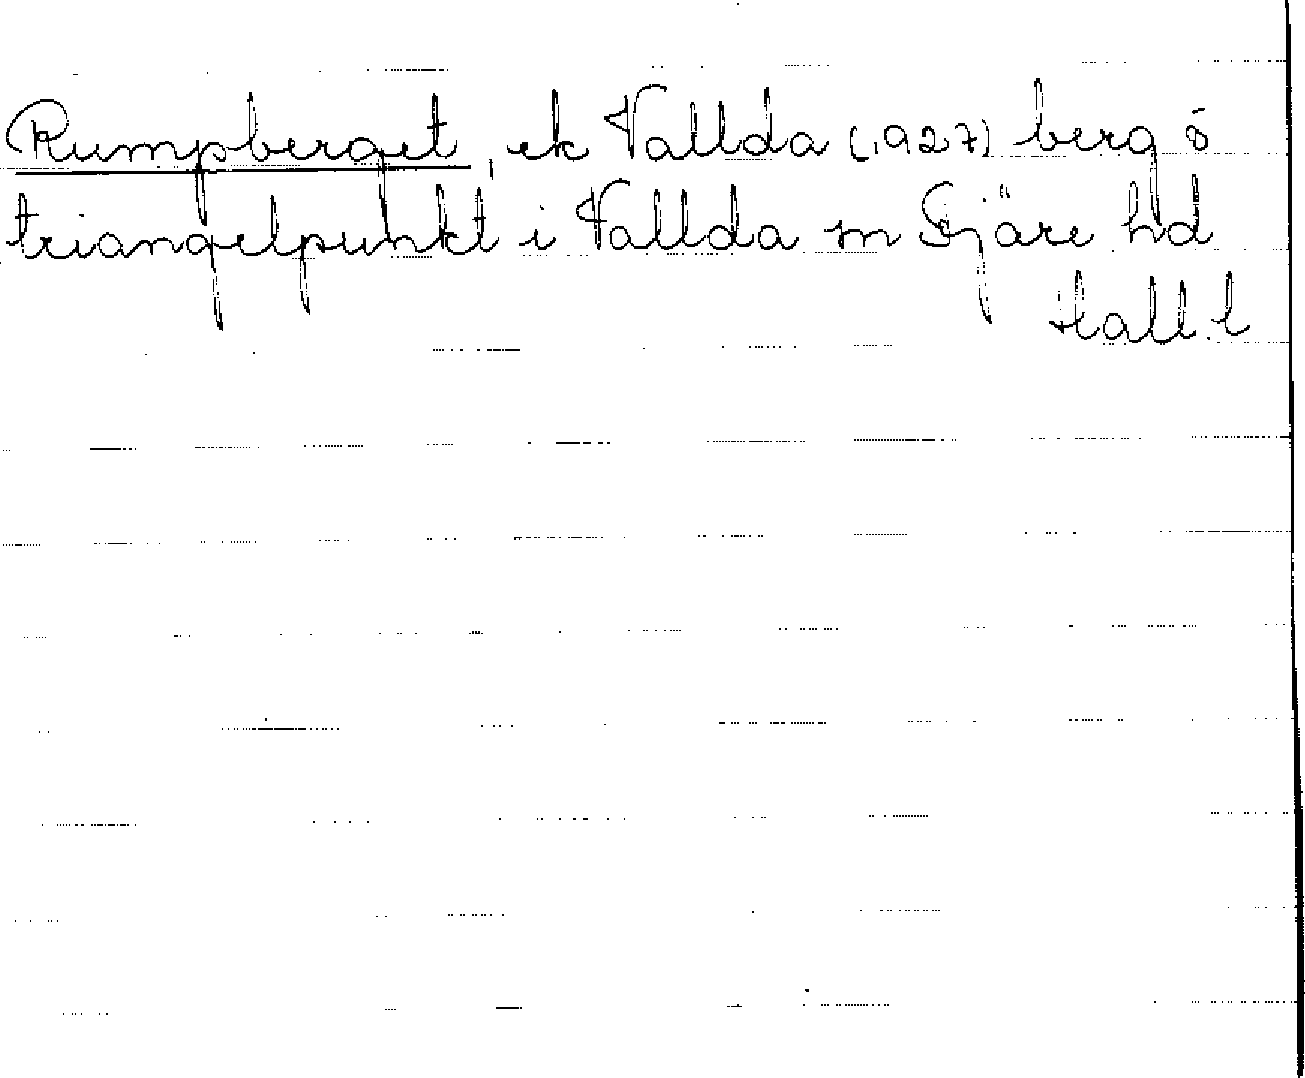 Rumpberget, ek Vallda (1927) berg ö
triangelpunkt i Vallda sn Fjäre hd
Hall. l